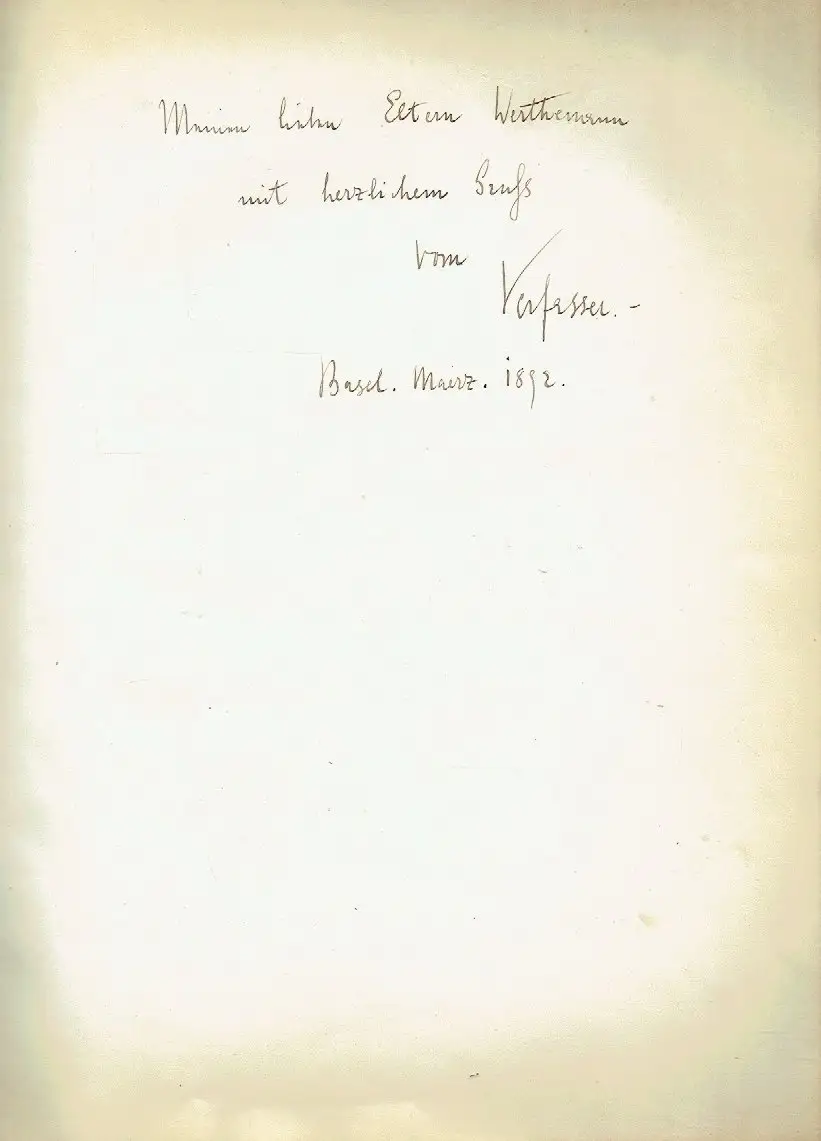 Meinen lieben Eltern Werthemann
mit herzlichem Gruss
vom
Verfasser. -
Basel. Maerz. 1892.